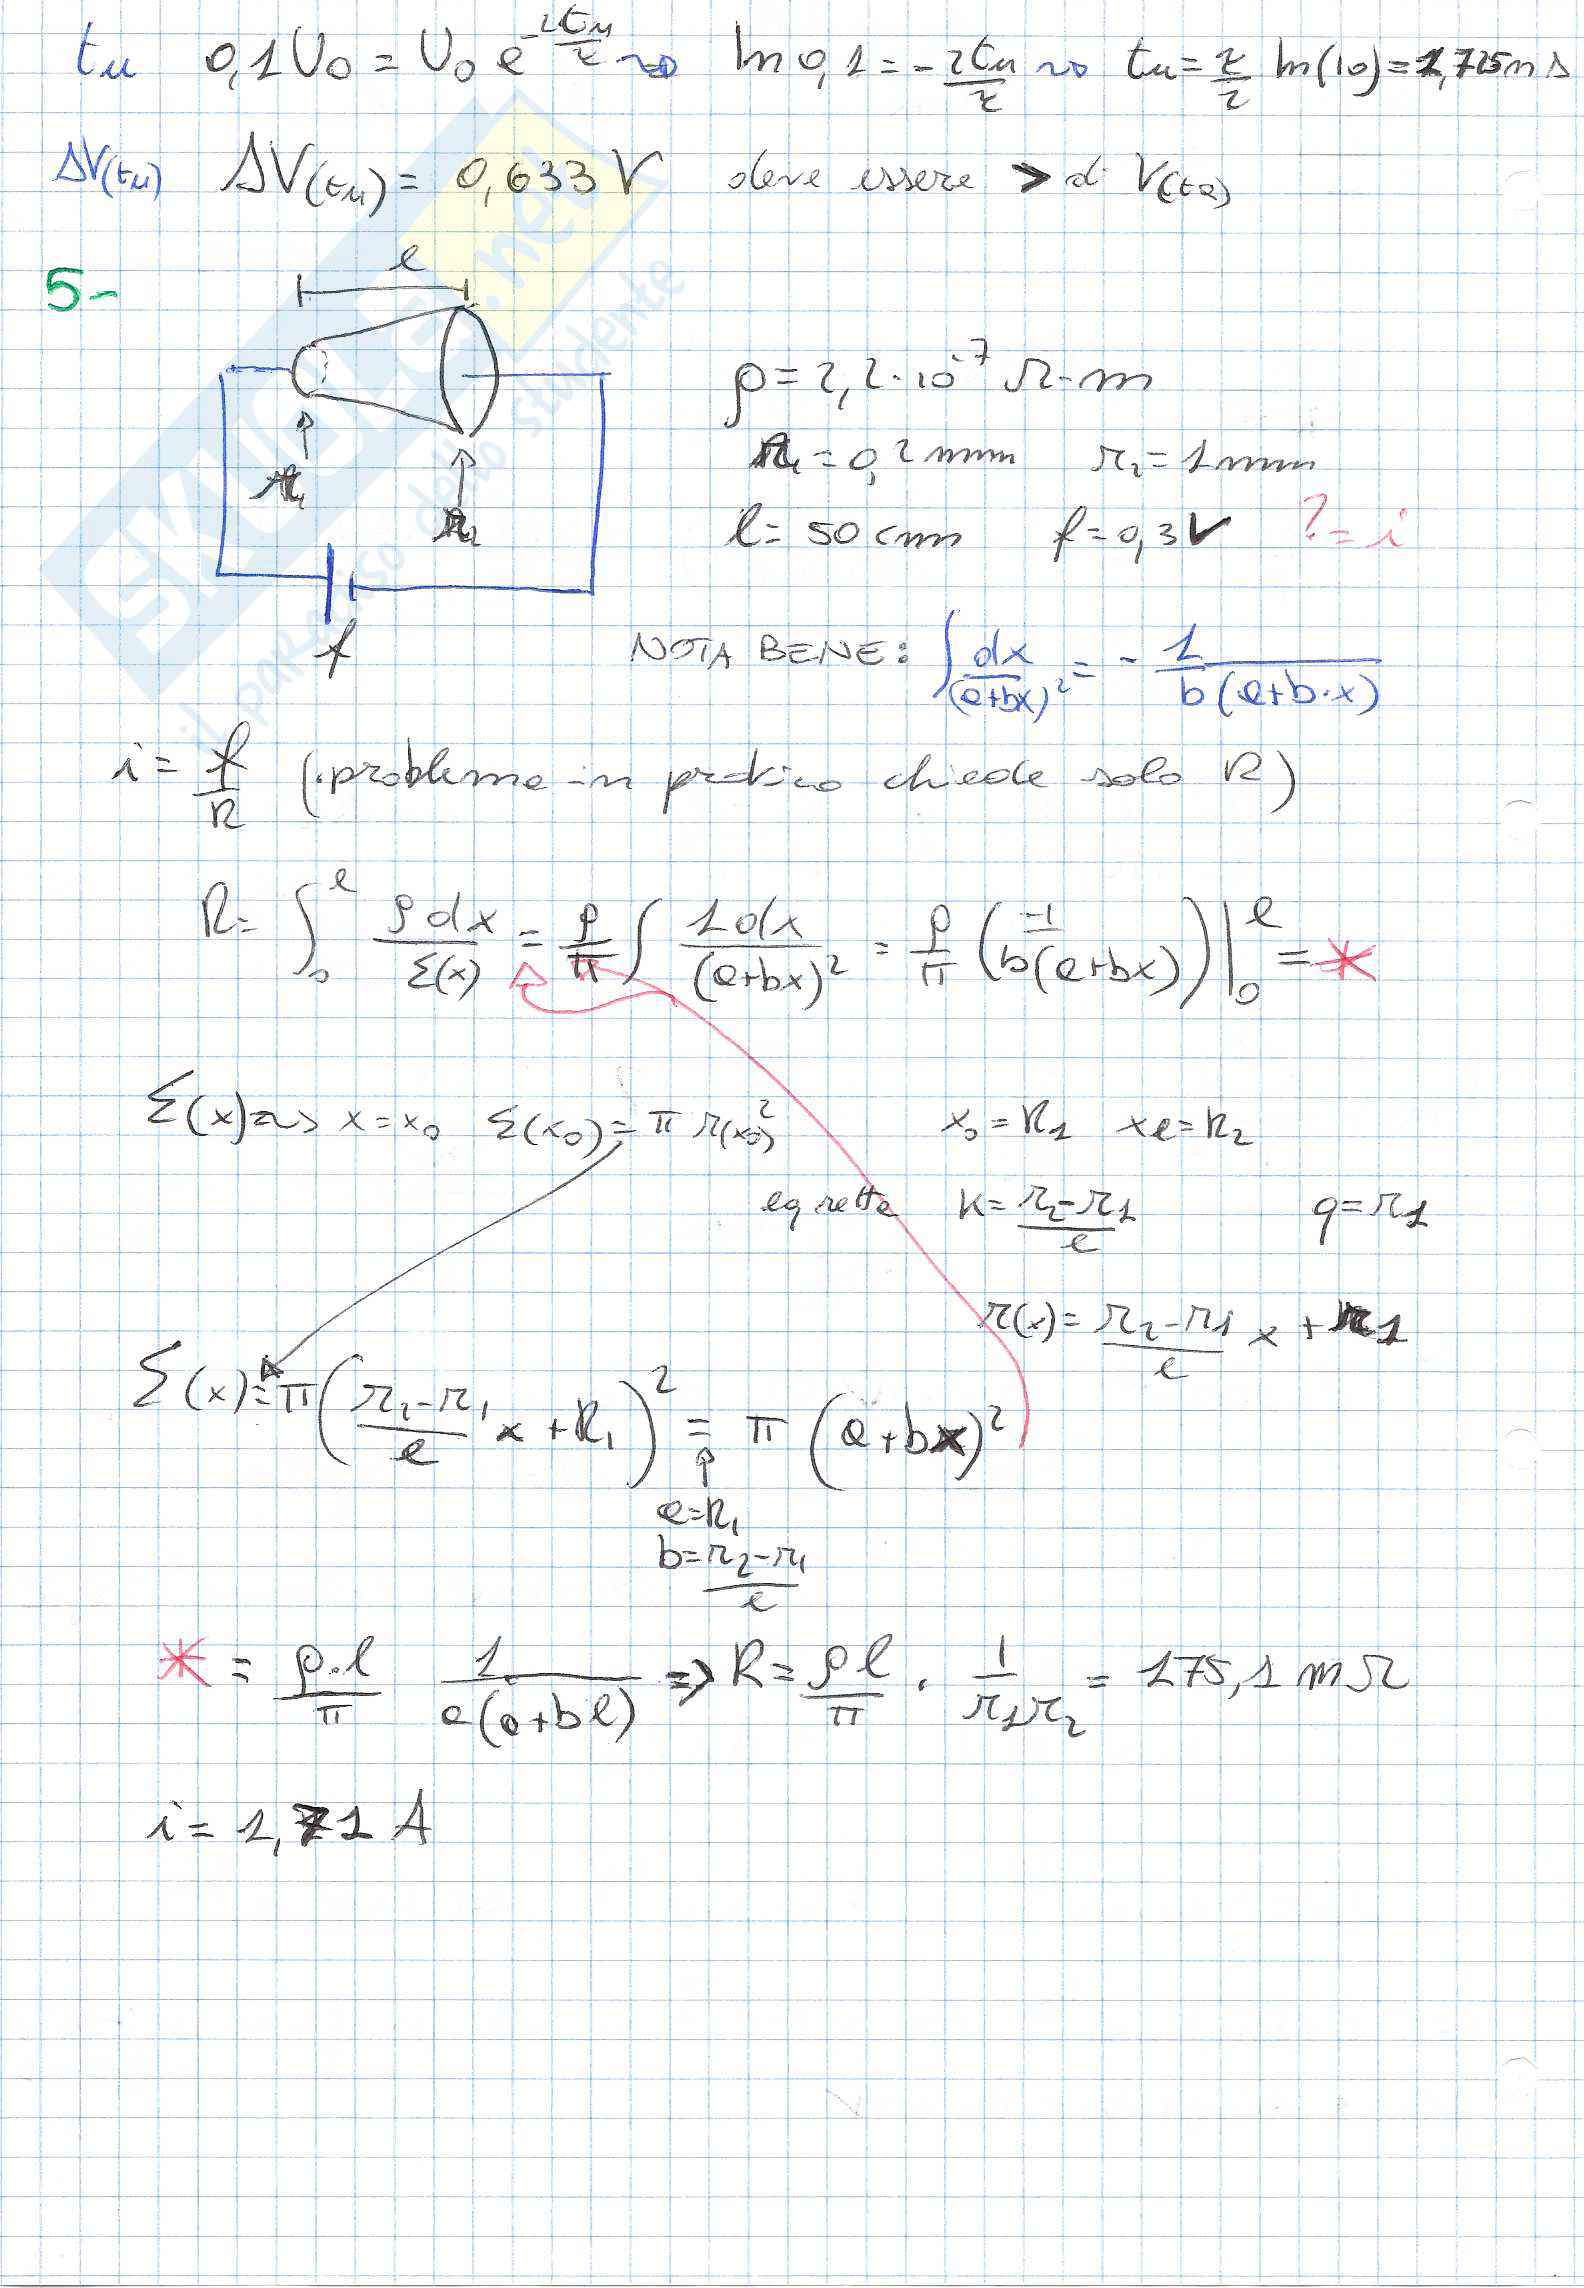 tu 0,1U0 = U0 e^(-2tu/τ) ~> ln 0,1 = -2tu/τ ~> tu = τ/2 ln(10) = 1,725 ms
ΔV(tu) ΔV(tu) = 0,633 V deve essere > di V(te)
5-
l
ρ = 2,2·10^-7 Ω·m
r1 = 0,2 mm r2 = 1 mm
r1
r2
l = 50 cm f = 0,3 V ? = i
f
NOTA BENE: ∫ dx/(a+bx)² = - 1/(b(a+b·x))
i = f/R (problema in pratica chiede solo R)
R = ∫₀^l ρdx/Σ(x) = ρ/π ∫ 1dx/(a+bx)² = ρ/π (-1/(b(a+bx)))|₀^l = *
Σ(x) ~> x = x0 Σ(x0) = π r(x0)² x0 = R1 xl = R2
eq retta K = (r2-r1)/l q = r1
r(x) = (r2-r1)/l x + r1
Σ(x) = π((r2-r1)/l x + R1)² = π (a+bx)²
a = R1
b = (r2-r1)/l
* = ρ·l/π 1/(a(a+bl)) => R = ρl/π · 1/(r1r2) = 175,1 mΩ
i = 1,71 A
SKUOLA.net
il paradiso dello studente